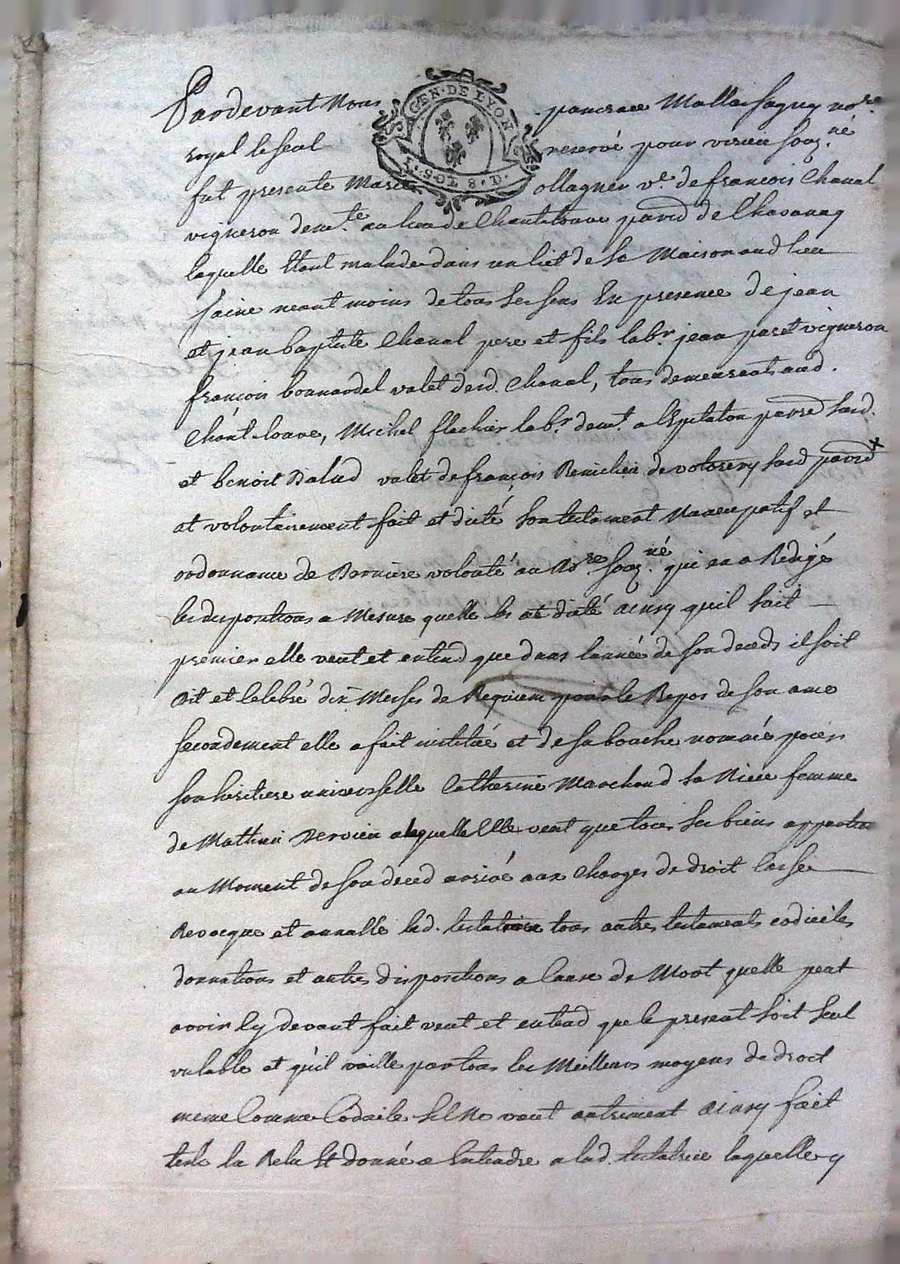 Pardevant Nous pancrace Mallassagny no.re
royal le seul reservé pour virieu souz.né
fut presente Marie ollagner v.e de francois Chanal
GEN · DE LYON
1 · SOL 8 · D.
vigneron dem.te au lieu de Chanteloüve parr.d de Chavanay
laquelle Etant malade dans un liet de sa Maison aud lieu
saine neant moins de tous ses sens En presence de jean
et jean baptiste Chanal pere et fils lab.r jean paret vigneron
françois bonnardel valet dud. Chanal, tous demeurants aud.
Chantelouve, Michel flacher lab.r dem.t a parr.
et benoit valet de françois de
at volontairement fait et dicté son testament Nuncupatif et
ordonnance de Derniere volonté au No.re souz.né qui en a Redigé
les dispositions a Mesure quelle les at dicté ainsy quil suit
premier elle veut et entend que dans lannée de son deceds il soit
Dit et Celebré dix Messes de Requiem pour le Repos de son ame
secondement elle a fait institué et de sa bouche nomméé pour
son heritiere universelle Catherine Marchand sa Niece femme
de Mathieu Vervieu a laquelle Elle veut que tous ses biens appartie
au Moment de son deced arrivé aux Charges de droit Casse
Revocque et annulle lad. testatrice tous autres testaments codiciles
donnations et autres dispositions a Cause de Mort quelle peut
avoir Cy devant fait veut et entend que le present soit seul
valable et quil vaille par tous les Meilleurs moyens de droit
meme Comme Codicile sil Ne vaut autrement ainsy fait
leu Releu Et donné a Entendre a lad. testatrice laquelle y